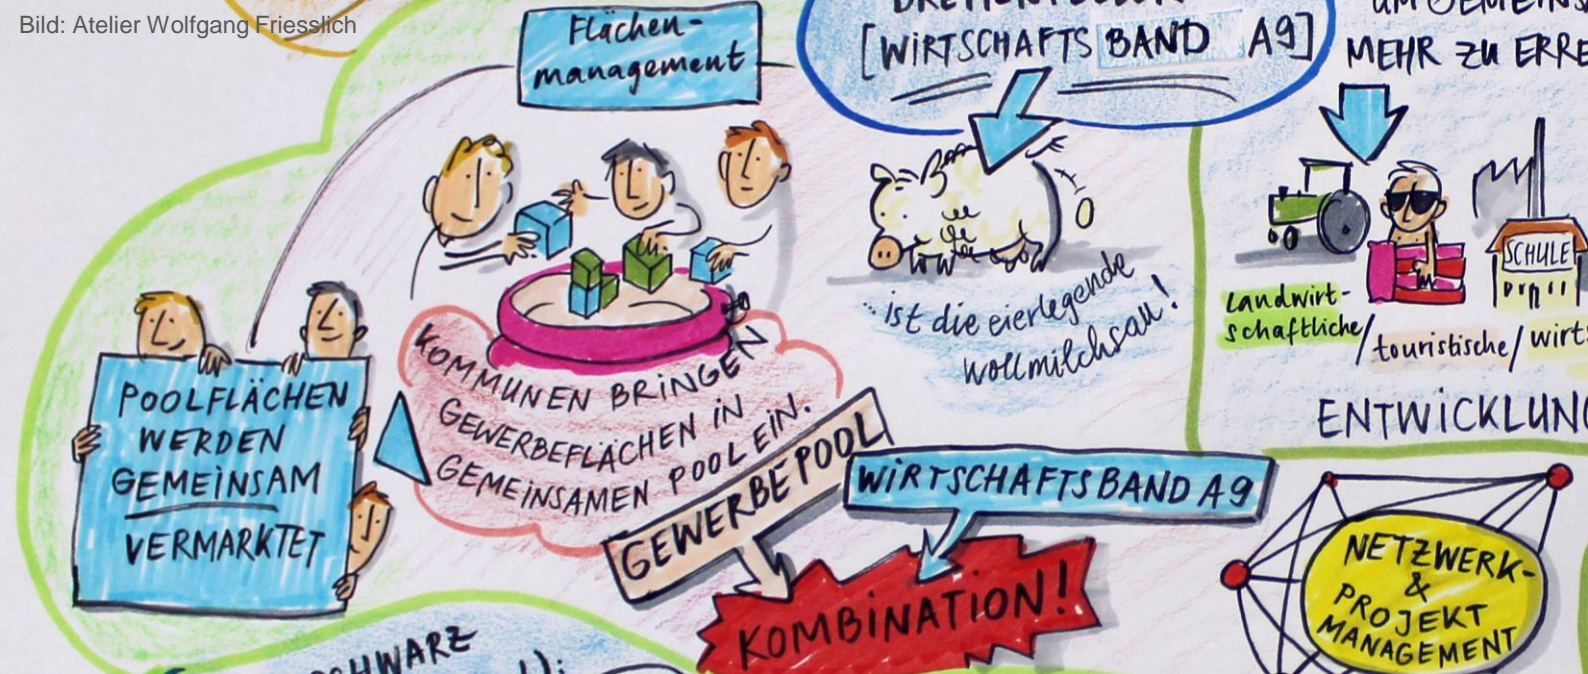 Bild: Atelier Wolfgang Friesslich
Flächen-
management
[WiRTSCHAFTS BAND A9]
MEHR ZU ERRE
.. ist die eierlegende
wollmilchsau!
SCHULE
Landwirt-
schaftliche/
touristische/
wirts
ENTWiCKLUNG
POOLFLÄCHEN
WERDEN
GEMEiNSAM
VERMARKTET
KOMMUNEN BRiNGEN
GEWERBEFLÄCHEN iN
GEMEiNSAMEN POOL EiN.
GEWERBEPOOL
WiRTSCHAFTSBAND A9
KOMBiNATiON!
NETZWERK-
&
PROJEKT
MANAGEMENT